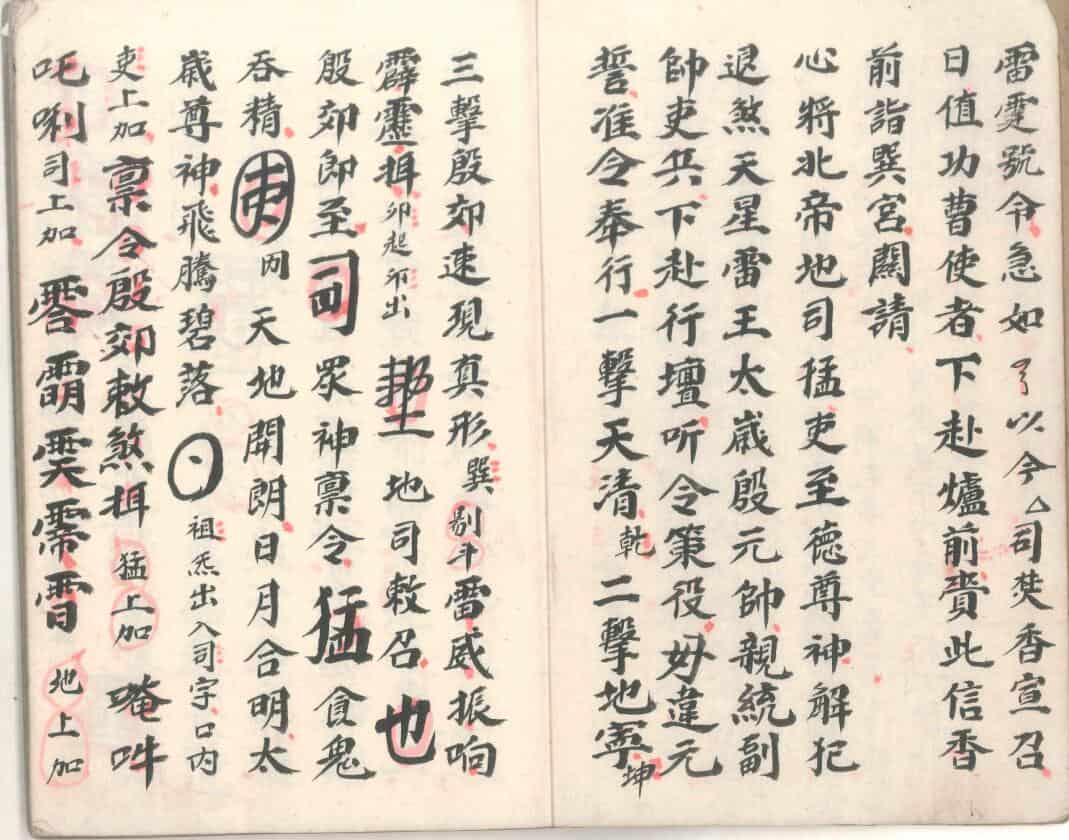 雷霆號令急如以今△司焚香宣召
日值功曹使者下赴爐前賫此信香
前詣巽宮關請
心將北帝地司猛吏至德尊神解犯
退煞天星雷王太歲殷元帥親統副
帥吏兵下赴行壇听令策役毋違元
誓准令奉行一擊天清乾二擊地寧坤
三擊殷郊速現真形巽剔斗雷威振响
霹靂卯起卯出地司敕召也
殷郊即至司眾神禀令猛食鬼
吞精吏內天地開朗日月合明太
歲尊神飛騰碧落祖炁出入司字口內
吏上加禀令殷郊敕煞猛上加唵吽
吒唎司上加地上加